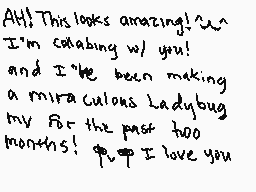 AH! This looks amazing! ^u^
I'm collabing w/ you!
and I've been making
a miraculous Ladybug
mv for the past two
months! φ,φ I love you